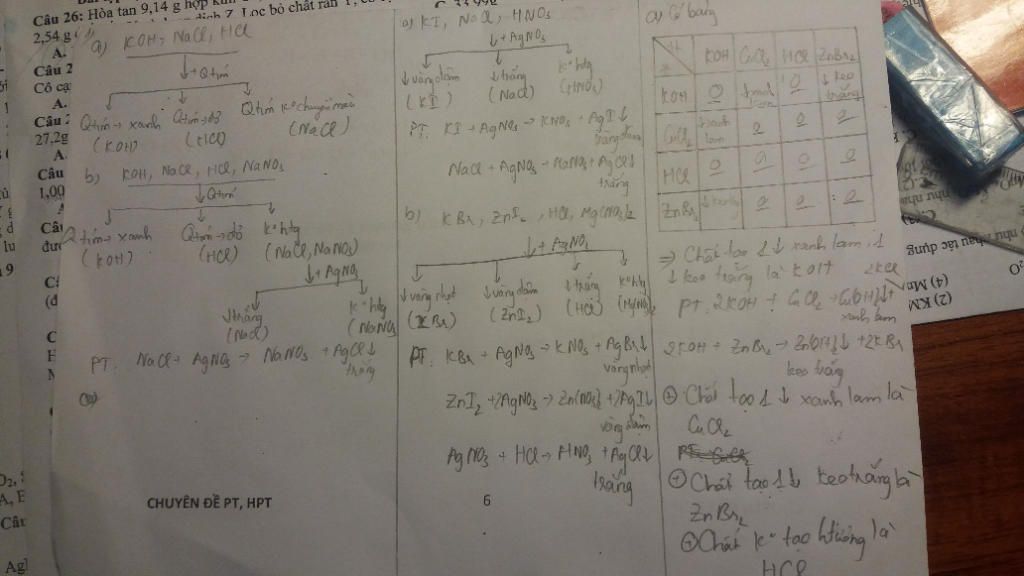 Câu 26: Hòa tan 9,14 g hợp kim
2,54 g
A.
Câu 2
Cô cạ
A.
Câu 2
27,2g
A.
Câu
1,00
a) KOH, NaCl, HCl
+ Qtím
Qtím → xanh Qtím → đỏ Qtím K° chuyển màu
(KOH) (HCl) (NaCl)
b) KOH, NaCl, HCl, NaNO3
Qtím
Qtím → xanh Qtím → đỏ K° htg
(KOH) (HCl) (NaCl, NaNO3)
+ AgNO3
↓ trắng K° htg
(NaCl) (NaNO3)
PT: NaCl + AgNO3 → NaNO3 + AgCl↓
trắng
CHUYÊN ĐỀ PT, HPT
a) KI, NaCl, HNO3
+ AgNO3
↓ vàng đậm ↓ trắng K° htg
(KI) (NaCl) (HNO3)
PT: KI + AgNO3 → KNO3 + AgI↓
vàng đậm
NaCl + AgNO3 → NaNO3 + AgCl↓
trắng
b) KBr, ZnI2, HCl, Mg(NO3)2
+ AgNO3
↓ vàng nhạt ↓ vàng đậm ↓ trắng K° htg
(KBr) (ZnI2) (HCl) (Mg(NO3)2)
PT: KBr + AgNO3 → KNO3 + AgBr↓
vàng nhạt
ZnI2 + 2AgNO3 → Zn(NO3)2 + 2AgI↓
vàng đậm
AgNO3 + HCl → HNO3 + AgCl↓
trắng
6
a) Kẻ bảng
KOH CuCl2 HCl ZnBr2
KOH 0 ↓ xanh lam 0 ↓ keo trắng
CuCl2 ↓ xanh lam 0 0 0
HCl 0 0 0 0
ZnBr2 ↓ keo trắng 0 0 0
⇒ Chất tạo 1↓ xanh lam, 1
↓ keo trắng là KOH
PT: 2KOH + CuCl2 → Cu(OH)2↓ + 2KCl
xanh lam
2KOH + ZnBr2 → Zn(OH)2↓ + 2KBr
keo trắng
+ Chất tạo 1↓ xanh lam là
CuCl2
+ Chất tạo 1↓ keo trắng là
ZnBr2
+ Chất K° tạo htượng là
HCl
(2) KM
(4) Mn